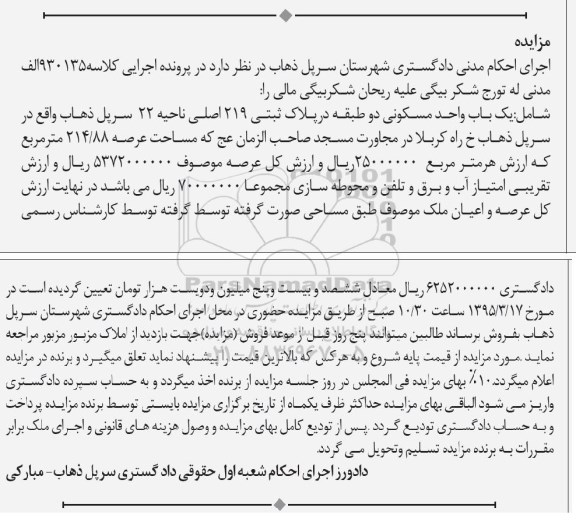 مزایده
اجرای احکام مدنی دادگستری شهرستان سرپل ذهاب در نظر دارد در پرونده اجرایی کلاسه۹۳۰۱۳۵الف
مدنی له تورج شکر بیگی علیه ریحان شکربیگی مالی را:
شامل:یک باب واحد مسکونی دو طبقه درپلاک ثبتی ۲۱۹ اصلی ناحیه ۲۲ سرپل ذهاب واقع در
سرپل ذهاب خ راه کربلا در مجاورت مسجد صاحب الزمان عج که مساحت عرصه ۲۱۴/۸۸ مترمربع
که ارزش هرمتر مربع ۲۵۰۰۰۰۰۰ریال و ارزش کل عرصه موصوف ۵۳۷۲۰۰۰۰۰۰ ریال و ارزش
تقریبی امتیاز آب و برق و تلفن و محوطه سازی مجموعا ۷۰۰۰۰۰۰۰ ریال می باشد در نهایت ارزش
کل عرصه و اعیان ملک موصوف طبق مساحی صورت گرفته توسط گرفته توسط کارشناس رسمی
دادگستری ۶۲۵۲۰۰۰۰۰۰ ریال معادل ششصد و بیست وپنج میلیون ودویست هزار تومان تعیین گردیده است در
مورخ ۱۳۹۵/۳/۱۷ ساعت ۱۰/۳۰ صبح از طریق مزایده حضوری در محل اجرای احکام دادگستری شهرستان سرپل
ذهاب بفروش برساند طالبین میتوانند پنج روز قبل از موعد فروش (مزایده)جهت بازدید از املاک مزبور مزبور مراجعه
نماید .مورد مزایده از قیمت پایه شروع و به هرکس که بالاترین قیمت را پیشنهاد نماید تعلق میگیرد و برنده در مزایده
اعلام میگردد.۱۰٪ بهای مزایده فی المجلس در روز جلسه مزایده از برنده اخذ میگردد و به حساب سپرده دادگستری
واریز می شود الباقی بهای مزایده حداکثر ظرف یکماه از تاریخ برگزاری مزایده بایستی توسط برنده مزایده پرداخت
و به حساب دادگستری تودیع گردد .پس از تودیع کامل بهای مزایده و وصول هزینه های قانونی و اجرای ملک برابر
مقررات به برنده مزایده تسلیم وتحویل می گردد.
دادورز اجرای احکام شعبه اول حقوقی دادگستری سرپل ذهاب- مبارکی
ParsNamadData